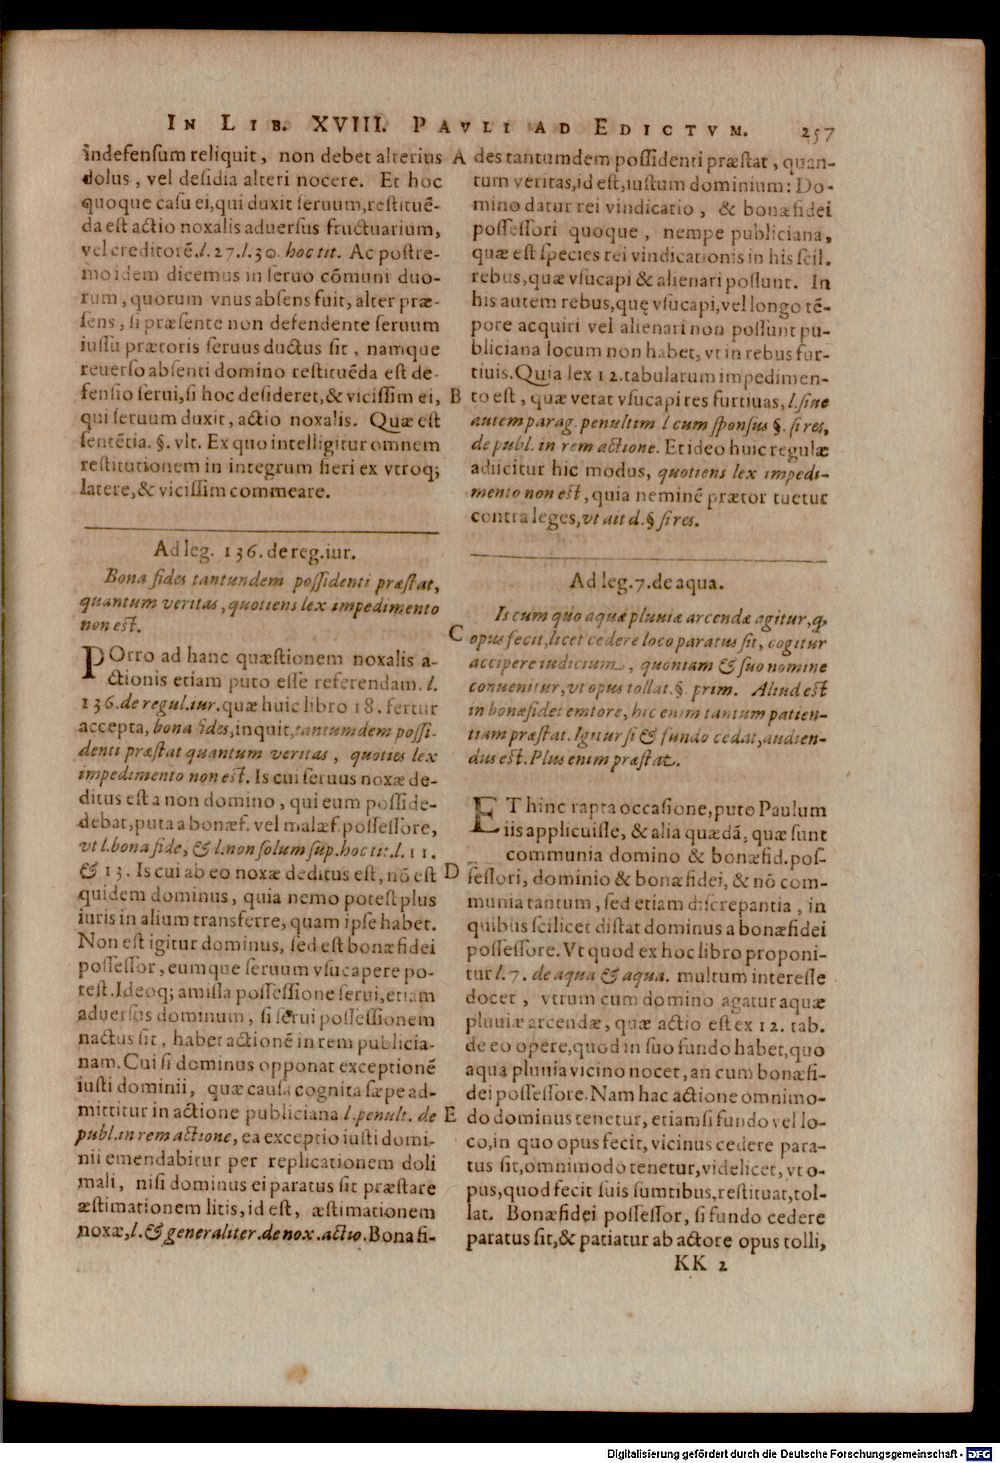 IN LIB. XVIII. PAVLI AD EDICTVM. 257
indefensum reliquit, non debet alterius
dolus, vel desidia alteri nocere. Et hoc
quoque casu ei, qui duxit seruum, restituē-
da est actio noxalis aduersus fructuarium,
vel creditorē. l. 27. l. 30. hoc tit. Ac postre-
mo idem dicemus in seruo cōmuni duo-
rum, quorum vnus absens fuit, alter præ-
sens, si præsente non defendente seruum
iussu prætoris seruus ductus sit, namque
reuerso absenti domino restituēda est de-
fensio serui, si hoc desideret, & vicissim ei,
qui seruum duxit, actio noxalis. Quæ est
sentētia. §. vlt. Ex quo intelligitur omnem
restitutionem in integrum fieri ex vtroq;
latere, & vicissim commeare.
Ad leg. 136. de reg. iur.
Bona fides tantundem possidenti præstat,
quantum veritas, quotiens lex impedimento
non est.
POrro ad hanc quæstionem noxalis a-
ctionis etiam puto esse referendam. l.
136. de regul. iur. quæ huic libro 18. fertur
accepta, bona fides, inquit, tantumdem possi-
denti præstat quantum veritas, quoties lex
impedimento non est. Is cui seruus noxæ de-
ditus est a non domino, qui eum posside-
debat, puta a bonæf. vel malæf. possessore,
vt l. bona fide, & l. non solum sup. hoc tit. l. 11.
& 13. Is cui ab eo noxæ deditus est, nō est
quidem dominus, quia nemo potest plus
iuris in alium transferre, quam ipse habet.
Non est igitur dominus, sed est bonæ fidei
possessor, eumque seruum vsucapere po-
test. Ideoq; amissa possessione serui, etiam
aduersus dominum, si serui possessionem
nactus sit, habet actionē in rem publicia-
nam. Cui si dominus opponat exceptionē
iusti dominii, quæ causa cognita sæpe ad-
mittitur in actione publiciana l. penult. de
publ. in rem actione, ea exceptio iusti domi-
nii emendabitur per replicationem doli
mali, nisi dominus ei paratus sit præstare
æstimationem litis, id est, æstimationem
noxæ, l. & generaliter. de nox. actio. Bona fi-
A
B
C
D
E
des tantumdem possidenti præstat, quan-
tum veritas, id est, iustum dominium: Do-
mino datur rei vindicatio, & bonæ fidei
possessori quoque, nempe publiciana,
quæ est species rei vindicationis in his scil.
rebus, quæ vsucapi & alienari possunt. In
his autem rebus, quę vsucapi, vel longo tē-
pore acquiri vel alienari non possunt pu-
bliciana locum non habet, vt in rebus fur-
tiuis. Quia lex 12. tabularum impedimen-
to est, quæ vetat vsucapi res furtiuas, l. siue
autem parag. penultim l cum sponsus §. si res,
de publ. in rem actione. Et ideo huic regulæ
adiicitur hic modus, quotiens lex impedi-
mento non est, quia neminē prætor tuetur
contra leges, vt ait d. § si res.
Ad leg. 7. de aqua.
Is cum quo aquæ pluuiæ arcendæ agitur, q
opus fecit, licet cedere loco paratus sit, cogitur
accipere iudicium, quoniam & suo nomine
conuenitur, vt opus tollat. §. prim. Aliud est
in bonæ fidei emtore, hic enim tantum patien-
tiam præstat. Igitur si & fundo cedat, audien-
dus est. Plus enim præstat.
ET hinc rapta occasione, puto Paulum
iis applicuisse, & alia quædā, quæ sunt
communia domino & bonæ fid. pos-
sessori, dominio & bonæ fidei, & nō com-
munia tantum, sed etiam discrepantia, in
quibus scilicet distat dominus a bonæ fidei
possessore. Vt quod ex hoc libro proponi-
tur l. 7. de aqua & aqua. multum interesse
docet, vtrum cum domino agatur aquæ
pluuiæ arcendæ, quæ actio est ex 12. tab.
de eo opere, quod in suo fundo habet, quo
aqua pluuia vicino nocet, an cum bonæ fi-
dei possessore. Nam hac actione omnimo-
do dominus tenetur, etiamsi fundo vel lo-
co, in quo opus fecit, vicinus cedere para-
tus sit, omnimodo tenetur, videlicet, vt o-
pus, quod fecit suis sumtibus, restituat, tol-
lat. Bonæ fidei possessor, si fundo cedere
paratus sit, & patiatur ab actore opus tolli,
KK 2
Digitalisierung gefördert durch die Deutsche Forschungsgemeinschaft - DFG